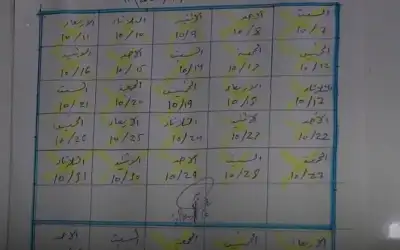 السبت الاحد الاثنين الثلاثاء الاربعاء
10/7 10/8 10/9 10/10 10/11
الخميس الجمعه السبت الاحد الاثنين
10/12 10/13 10/14 10/15 10/16
الثلاثاء الاربعاء الخميس الجمعه السبت
10/17 10/18 10/19 10/20 10/21
الاحد الاثنين الثلاثاء الاربعاء الخميس
10/22 10/23 10/24 10/25 10/26
الجمعه السبت الاحد الاثنين الثلاثاء
10/27 10/28 10/29 10/30 10/31
الاربعاء الخميس الجمعه السبت الاحد